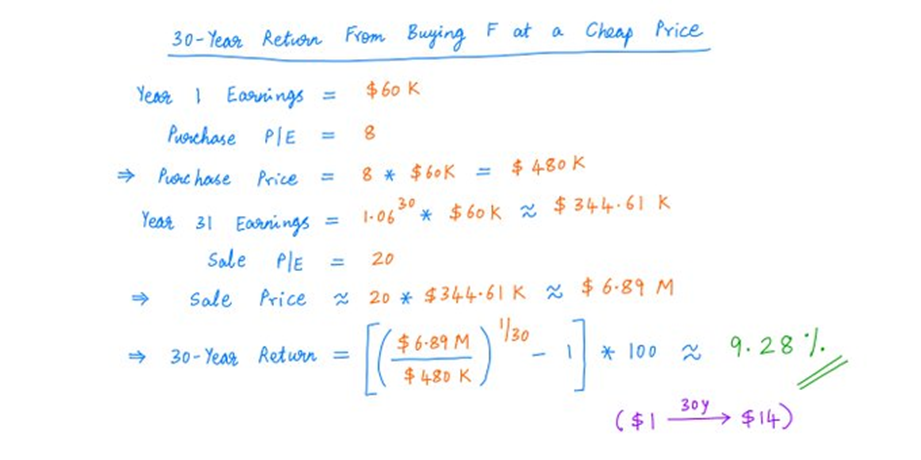 30-Year Return From Buying F at a Cheap Price
Year 1 Earnings = $60 K
Purchase P/E = 8
⇒ Purchase Price = 8 * $60K = $480K
Year 31 Earnings = 1.06^30 * $60K ≈ $344.61 K
Sale P/E = 20
⇒ Sale Price ≈ 20 * $344.61 K ≈ $6.89 M
⇒ 30-Year Return = [($6.89 M / $480 K)^1/30 - 1] * 100 ≈ 9.28%
($1 30y → $14)